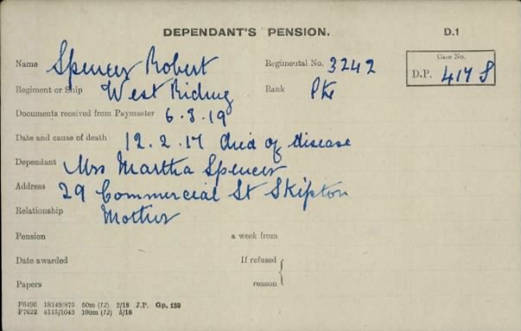 DEPENDANT'S PENSION. D.1
Name Spencer Robert Regimental No. 3242 Case No.
Regiment or Ship West Riding Rank Pte D.P. 417 S
Documents received from Paymaster 6.3.19
Date and cause of death 12.2.17 Died of disease
Dependant Mrs Martha Spencer
Address 29 Commercial St Skipton
Relationship Mother
Pension a week from
Date awarded If refused
Papers reason
P6496 18149/873 50m (12) 2/18 J.P. Gp. 139
P7622 4115/1043 100m (12) 5/18